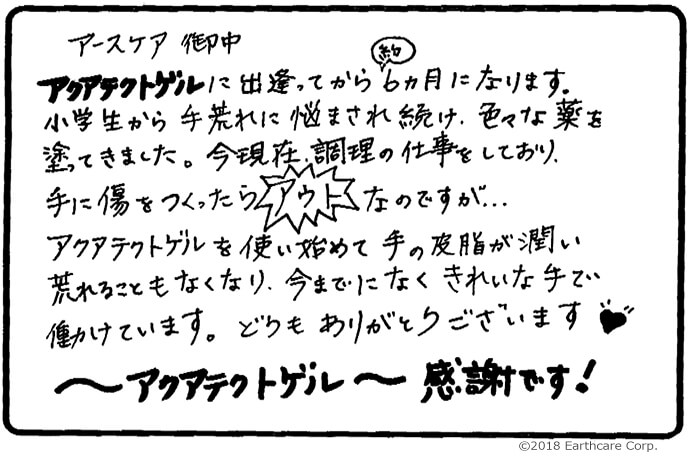 アースケア 御中
アクアテクトゲルに出逢ってから約6ヵ月になります。
小学生から手荒れに悩まされ続け、色々な薬を
塗ってきました。今現在、調理の仕事をしており、
手に傷をつくったらアウトなのですが…
アクアテクトゲルを使い始めて手の皮脂が潤い
荒れることもなくなり、今までになくきれいな手で
働けています。どうもありがとうございます
〜アクアテクトゲル〜 感謝です!
©2018 Earthcare Corp.